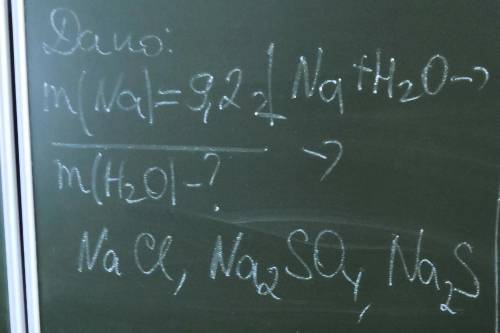 Дано:
m(Na)=9,2 г | Na + H₂O →
m(H₂O) - ? →
NaCl, Na₂SO₄, Na₂S